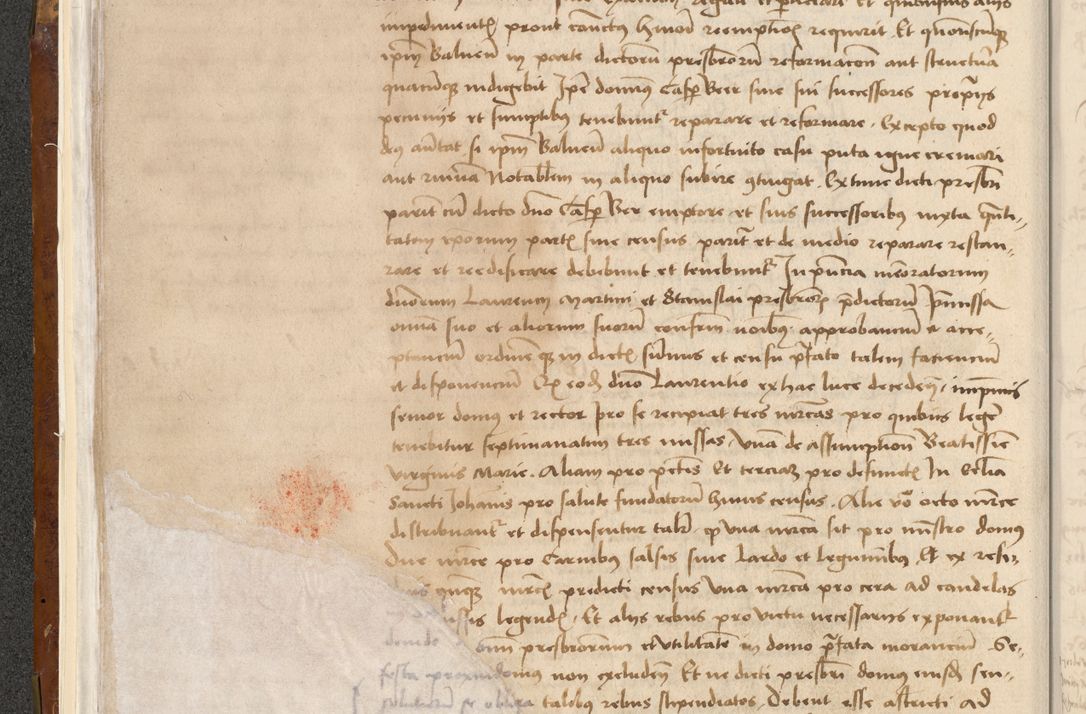 impedimentis prout contractus huiusmodi reemptionis requirit. Et quotienscunque
ipsum Balneum in parte dictorum presbrorum reformacionem aut structuram
quandoque indigebit Ipse dominus Casper Beer siue sui successores proprijs
pecunijs et sumptibus tenebuntur reparare et reformare. Excepto quod
deus auertat si ipsum Balneum aliquo infortuito casu puta igne cremari
aut ruinam Notabilem in aliquo subire contingat. Extunc dicti presbri
pariter cum dicto domino Casper Ber emptore et suis successoribus iuxta quanti-
tatem ipsorum partis siue census pariter et de medio reparare restau-
rare et reedificare debebunt et tenebuntur In presencia memoratorum
dominorum Laurencij Martini et Stanislai presbrorum predictorum premissa
omnia suo et aliorum suorum confratrum nominibus approbancium et acce-
ptancium ordinemque in dictis summis et censu prefato talem faciencium
et disponencium Quod eodem domino Laurentio ex hac luce decedente, inprimis
senior domus et rector pro se recipiat tres marcas pro quibus legere
tenebitur septimanatim tres missas Vnam de assumptione Beatissime
virginis Marie. Aliam pro peccatis Et terciam pro defunctis In Ecclesia
Sancti Johannis pro salute fundatorum huius census. Alie vero octo marce
distribuantur et dispensentur taliter quod vna marca sit pro ministro domus
Due marce pro Carnibus salsis siue Lardo et leguminibus. Et ex resi-
duis quinque marcis predicti census Vna marca pro cera ad candelas
legendis, Et alijs rebus pro victu necessarijs exponantur
deinde presbrorum et vtilitatem in domo prefata morancium Se-
festa proxim domus non excludendo Et ne dicti presbri domus eiusdem sen-
talibus rebus stipendiatos. Debent esse astricti ad